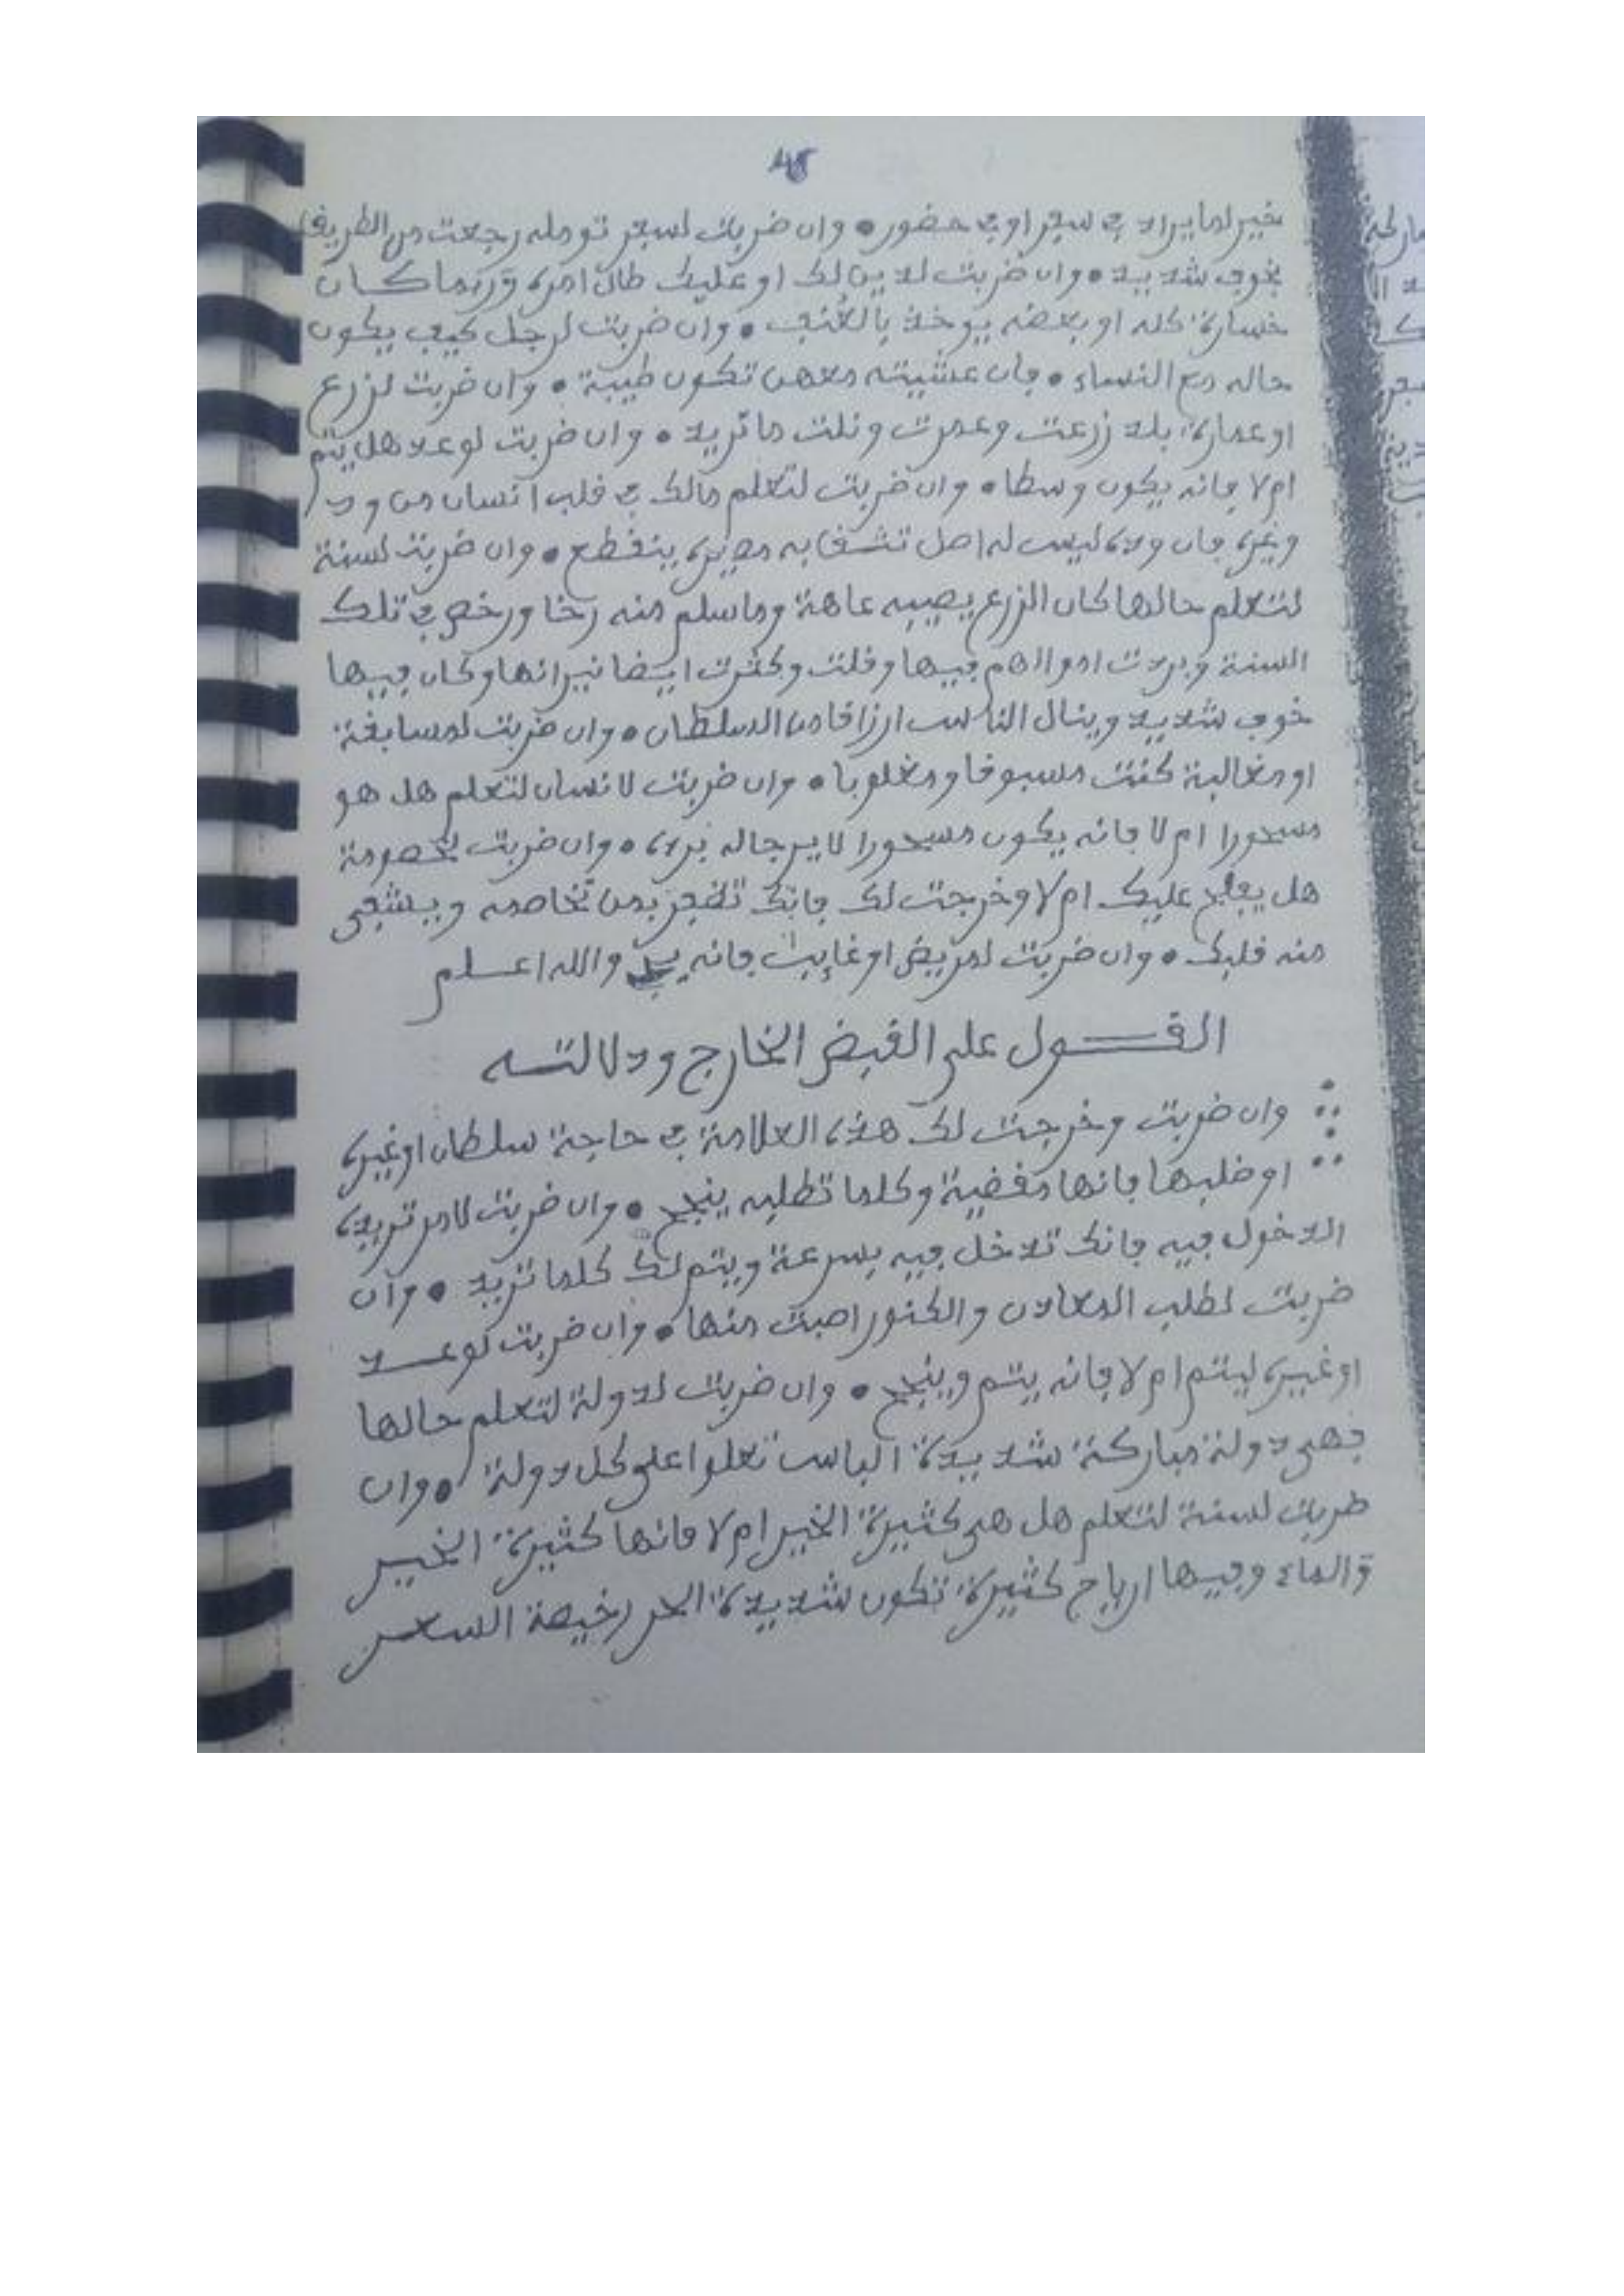 48
بخير لما يراد في سفر او في حضور • وان ضربت لسفر تومله رجعت من الطريق
بخوف شديد • وان ضربت لدين لك او عليك طال امره وربما كان
خسارة كله او بعضه يوخذ بالعُنف • وان ضربت لرجل كيف يكون
حاله مع النساء • فان عشيته معهن تكون طيبة • وان ضربت لزرع
او عمارة بلد زرعت وعمرت ونلت ما تريد • وان ضربت لوعد هل يتم
ام لا فانه يكون وسطا • وان ضربت لتعلم مالك في قلب انسان من ود
وغيره فان وده ليس له اصل تشقا به مصيره ينقطع • وان ضربت لسنة
لتعلم حالها كان الزرع يصيبه عاهة وما سلم منه رخا ورخص في تلك
السنة وبردت اموالهم فيها وقلت وكثرت ايضا نيرانها وكان فيها
خوف شديد وينال الناس ارزاقا من السلطان • وان ضربت لمسابقة
او مغالبة كنت مسبوقا ومغلوبا • وان ضربت لانسان لتعلم هل هو
مسحورا ام لا فانه يكون مسحورا لا يرجا له برء • وان ضربت لخصومة
هل يفلح عليك ام لا وخرجت لك فانك تظفر بمن تخاصمه ويشفى
منه قلبك • وان ضربت لمريض او غايب فانه والله اعلم
القول على القبض الخارج ودلالته
وان ضربت وخرجت لك هذه العلامة في حاجة سلطان او غيره
او طلبها فانها مقضية وكلما تطلبه ينجح • وان ضربت لامر تريده
الدخول فيه فانك تدخل فيه بسرعة ويتم لك كلما تريد • وان
ضربت لطلب المعادن والكنوز اصبت منها • وان ضربت لوعد
او غيره ليتم ام لا فانه يتم وينجح • وان ضربت لدولة لتعلم حالها
فهي دولة مباركة شديدة الباس تعلوا على كل دولة • وان
ضربت لسنة لتعلم هل هي كثيرة الخير ام لا فانها كثيرة الخير
والماء وفيها ارياح كثيرة تكون شديدة الحر رخيصة السعر